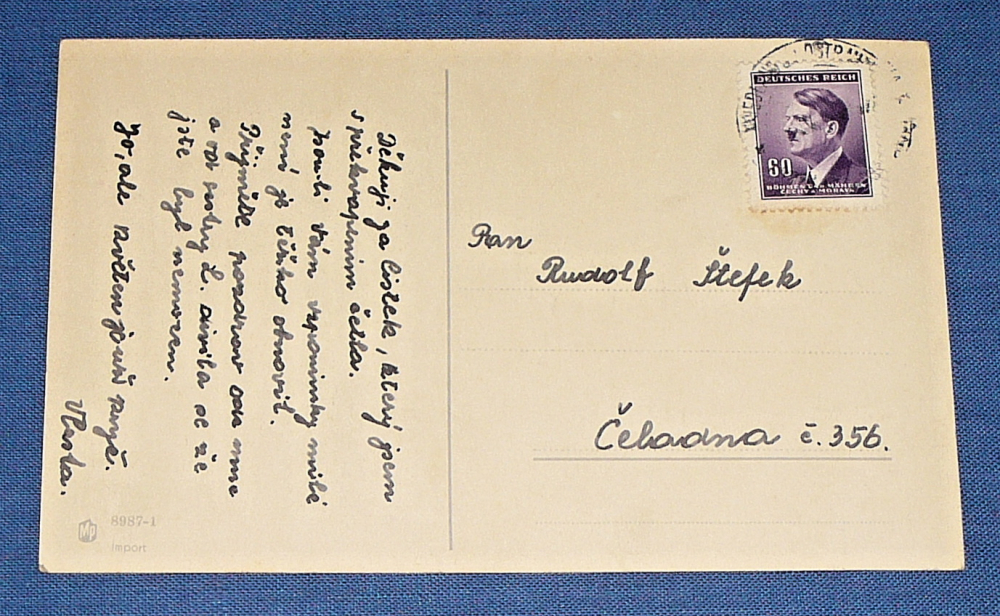 Děkuji za lístek, který jsem
s překvapením četla.
vám vzpomínky milé
není je těžko obnovit.
Přijměte pozdrav ode mne
a od sestry L. divila se že
jste byl nemocen.
Jo, ale květen jest pryč.
Vlasta.
MP
8987-1
Import
DEUTSCHES REICH
60
BÖHMEN UND MÄHREN
ČECHY A MORAVA
Pan
Rudolf Štefek
č. 356.